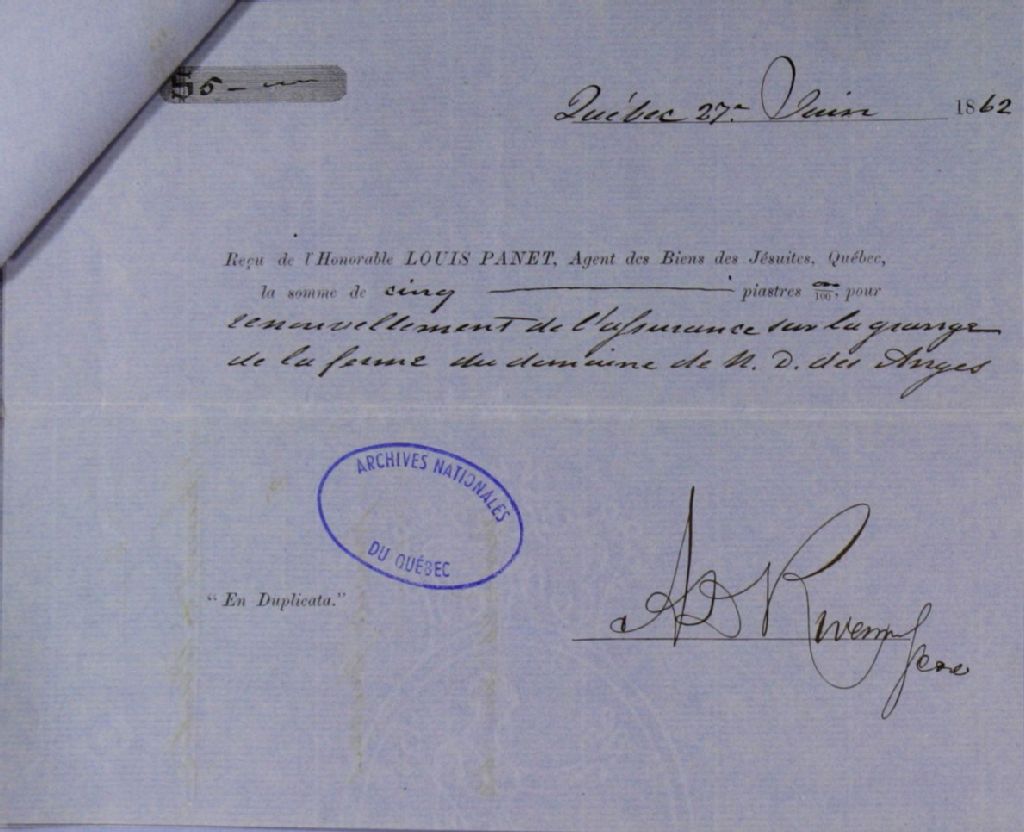 5 –
Québec 27e Juin 1862
Reçu de l'Honorable LOUIS PANET, Agent des Biens des Jésuites, Québec,
la somme de cinq piastres /100, pour
renouvellement de l'assurance sur la grange
de la ferme du domaine de N. D. des Anges
ARCHIVES NATIONALES
DU QUÉBEC
"En Duplicata."
A D R